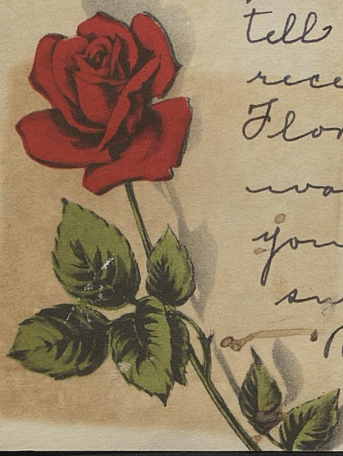 tell
rece
Flor
wa
you
su